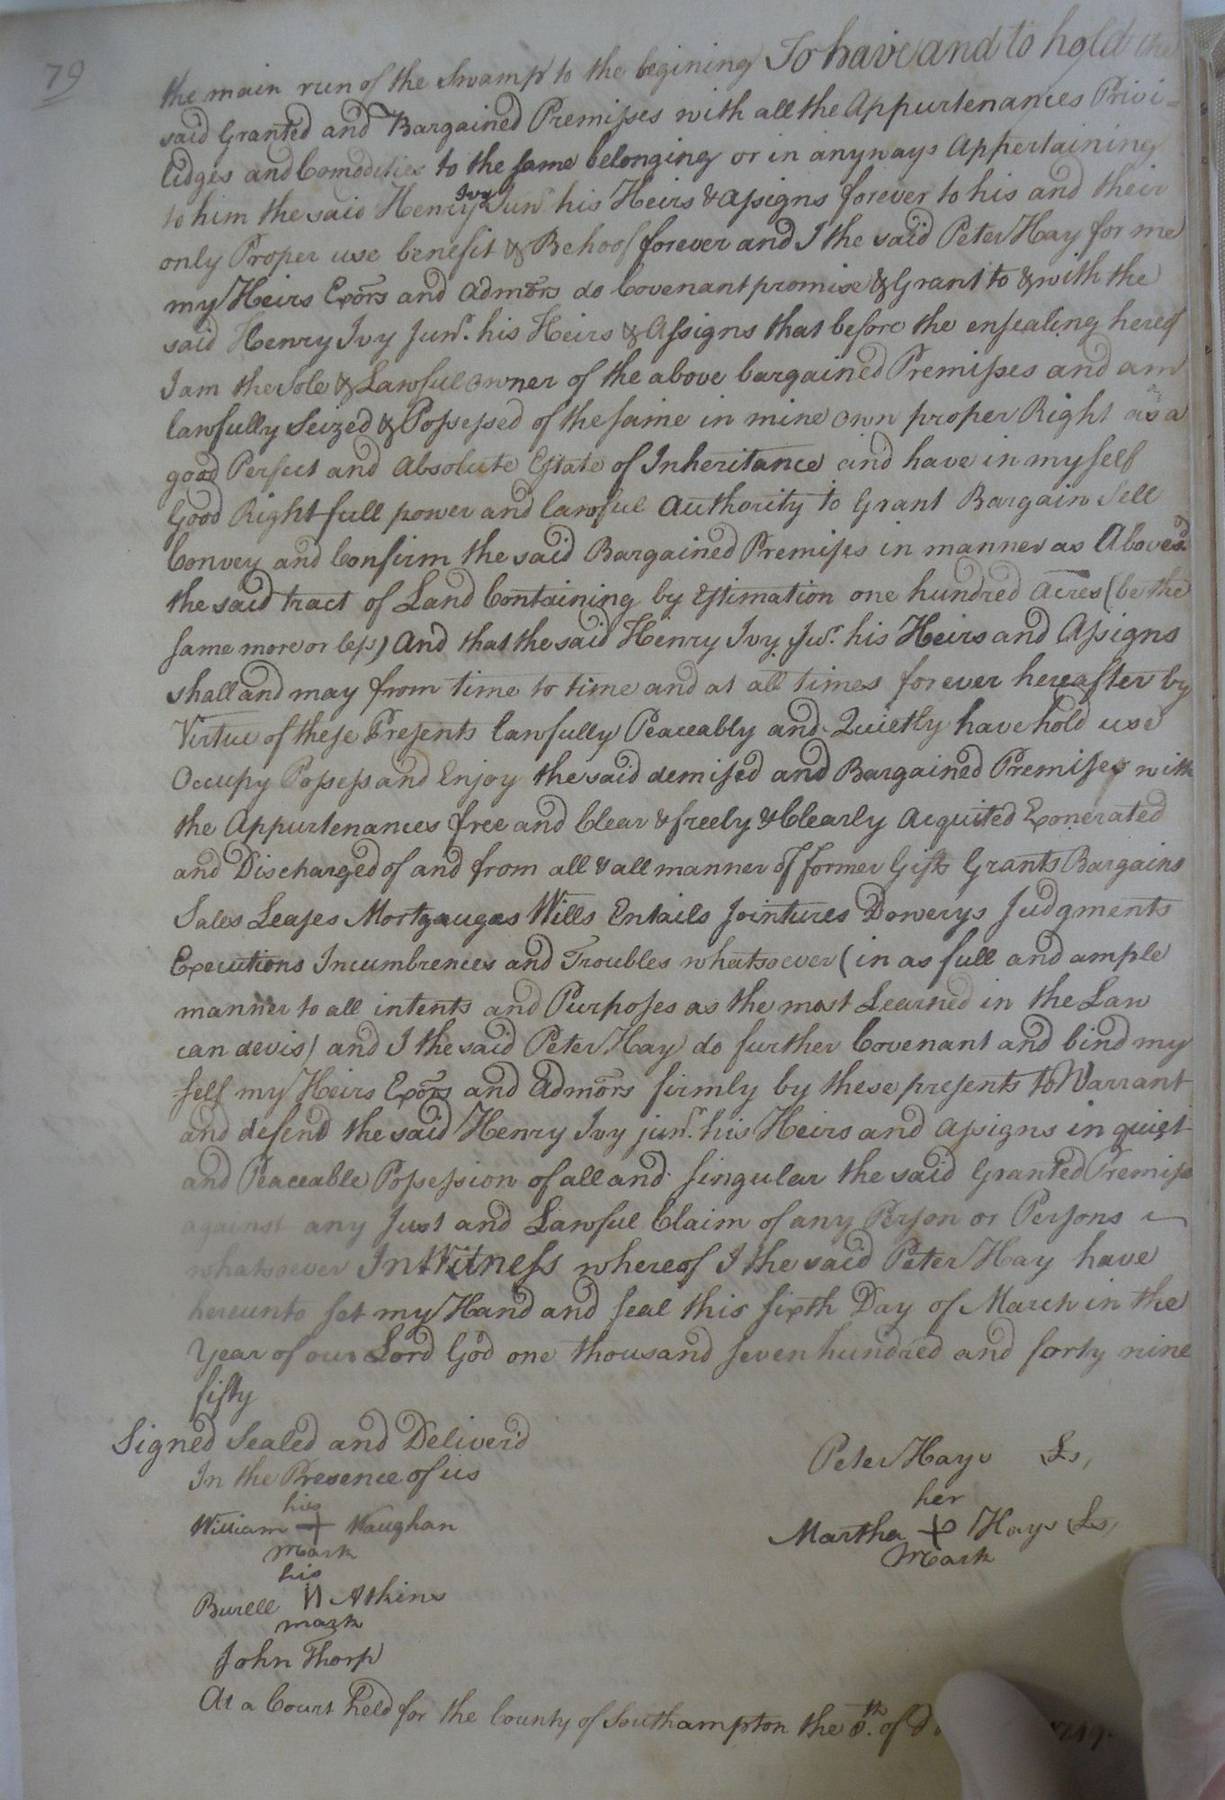 79
the main run of the Swamp to the begining To have and to hold the
said Granted and Bargained Premises with all the Appurtenances Privi=
lidges and Comodities to the same belonging or in anyways Appertaining
to him the said Henry Ivy Junr his Heirs & Assigns forever to his and their
only Proper use benefit & Behoof forever and I the said Peter Hay for me
my Heirs Exors and Admors do Covenant promise & Grant to & with the
said Henry Ivy Junr. his Heirs & Assigns that before the ensealing hereof
I am the Sole & Lawful Owner of the above bargained Premises and am
lawfully Seized & Possessed of the same in mine own proper Right as a
good Perfect and Absolute Estate of Inheritance and have in my self
Good Right full power and lawful Authority to Grant Bargain Sell
Convey and Confirm the said Bargained Premises in manner as Abovesd.
the said tract of Land Containing by Estimation one hundred Acres (be the
same more or less) And that the said Henry Ivy Jur. his Heirs and Assigns
shall and may from time to time and at all times forever hereafter by
Virtue of these Presents lawfully Peaceably and Quietly have hold use
Occupy Possess and Enjoy the said demised and Bargained Premises with
the Appurtenances free and Clear & freely & Clearly Acquited Exonerated
and Discharged of and from all & all manner of former Gifts Grants Bargains
Sales Leases Mortgauges Wills Entails Jointures Dowerys Judgments
Executions Incumbrences and Troubles whatsoever (in as full and ample
manner to all intents and Purposes as the most Learned in the Law
can devis) and I the said Peter Hay do further Covenant and bind my
self my Heirs Exors and Admors firmly by these presents to Warrant
and defend the said Henry Ivy junr. his Heirs and Assigns in quiet
and Peaceable Possession of all and singular the said Granted Premise
against any Just and Lawful Claim of any Person or Persons
whatsoever In Witness whereof I the said Peter Hay have
hereunto set my Hand and seal this sixth Day of March in the
Year of our Lord God one thousand seven hundred and forty nine
fifty
Signed Sealed and Deliver'd
In the Presence of us
Peter Hays Ls,
his
William + Vaughan
mark
her
Martha Hays Ls,
Mark
his
Burell Atkins
mark
John Thorp
At a Court held for the County of Southampton the 8th. of